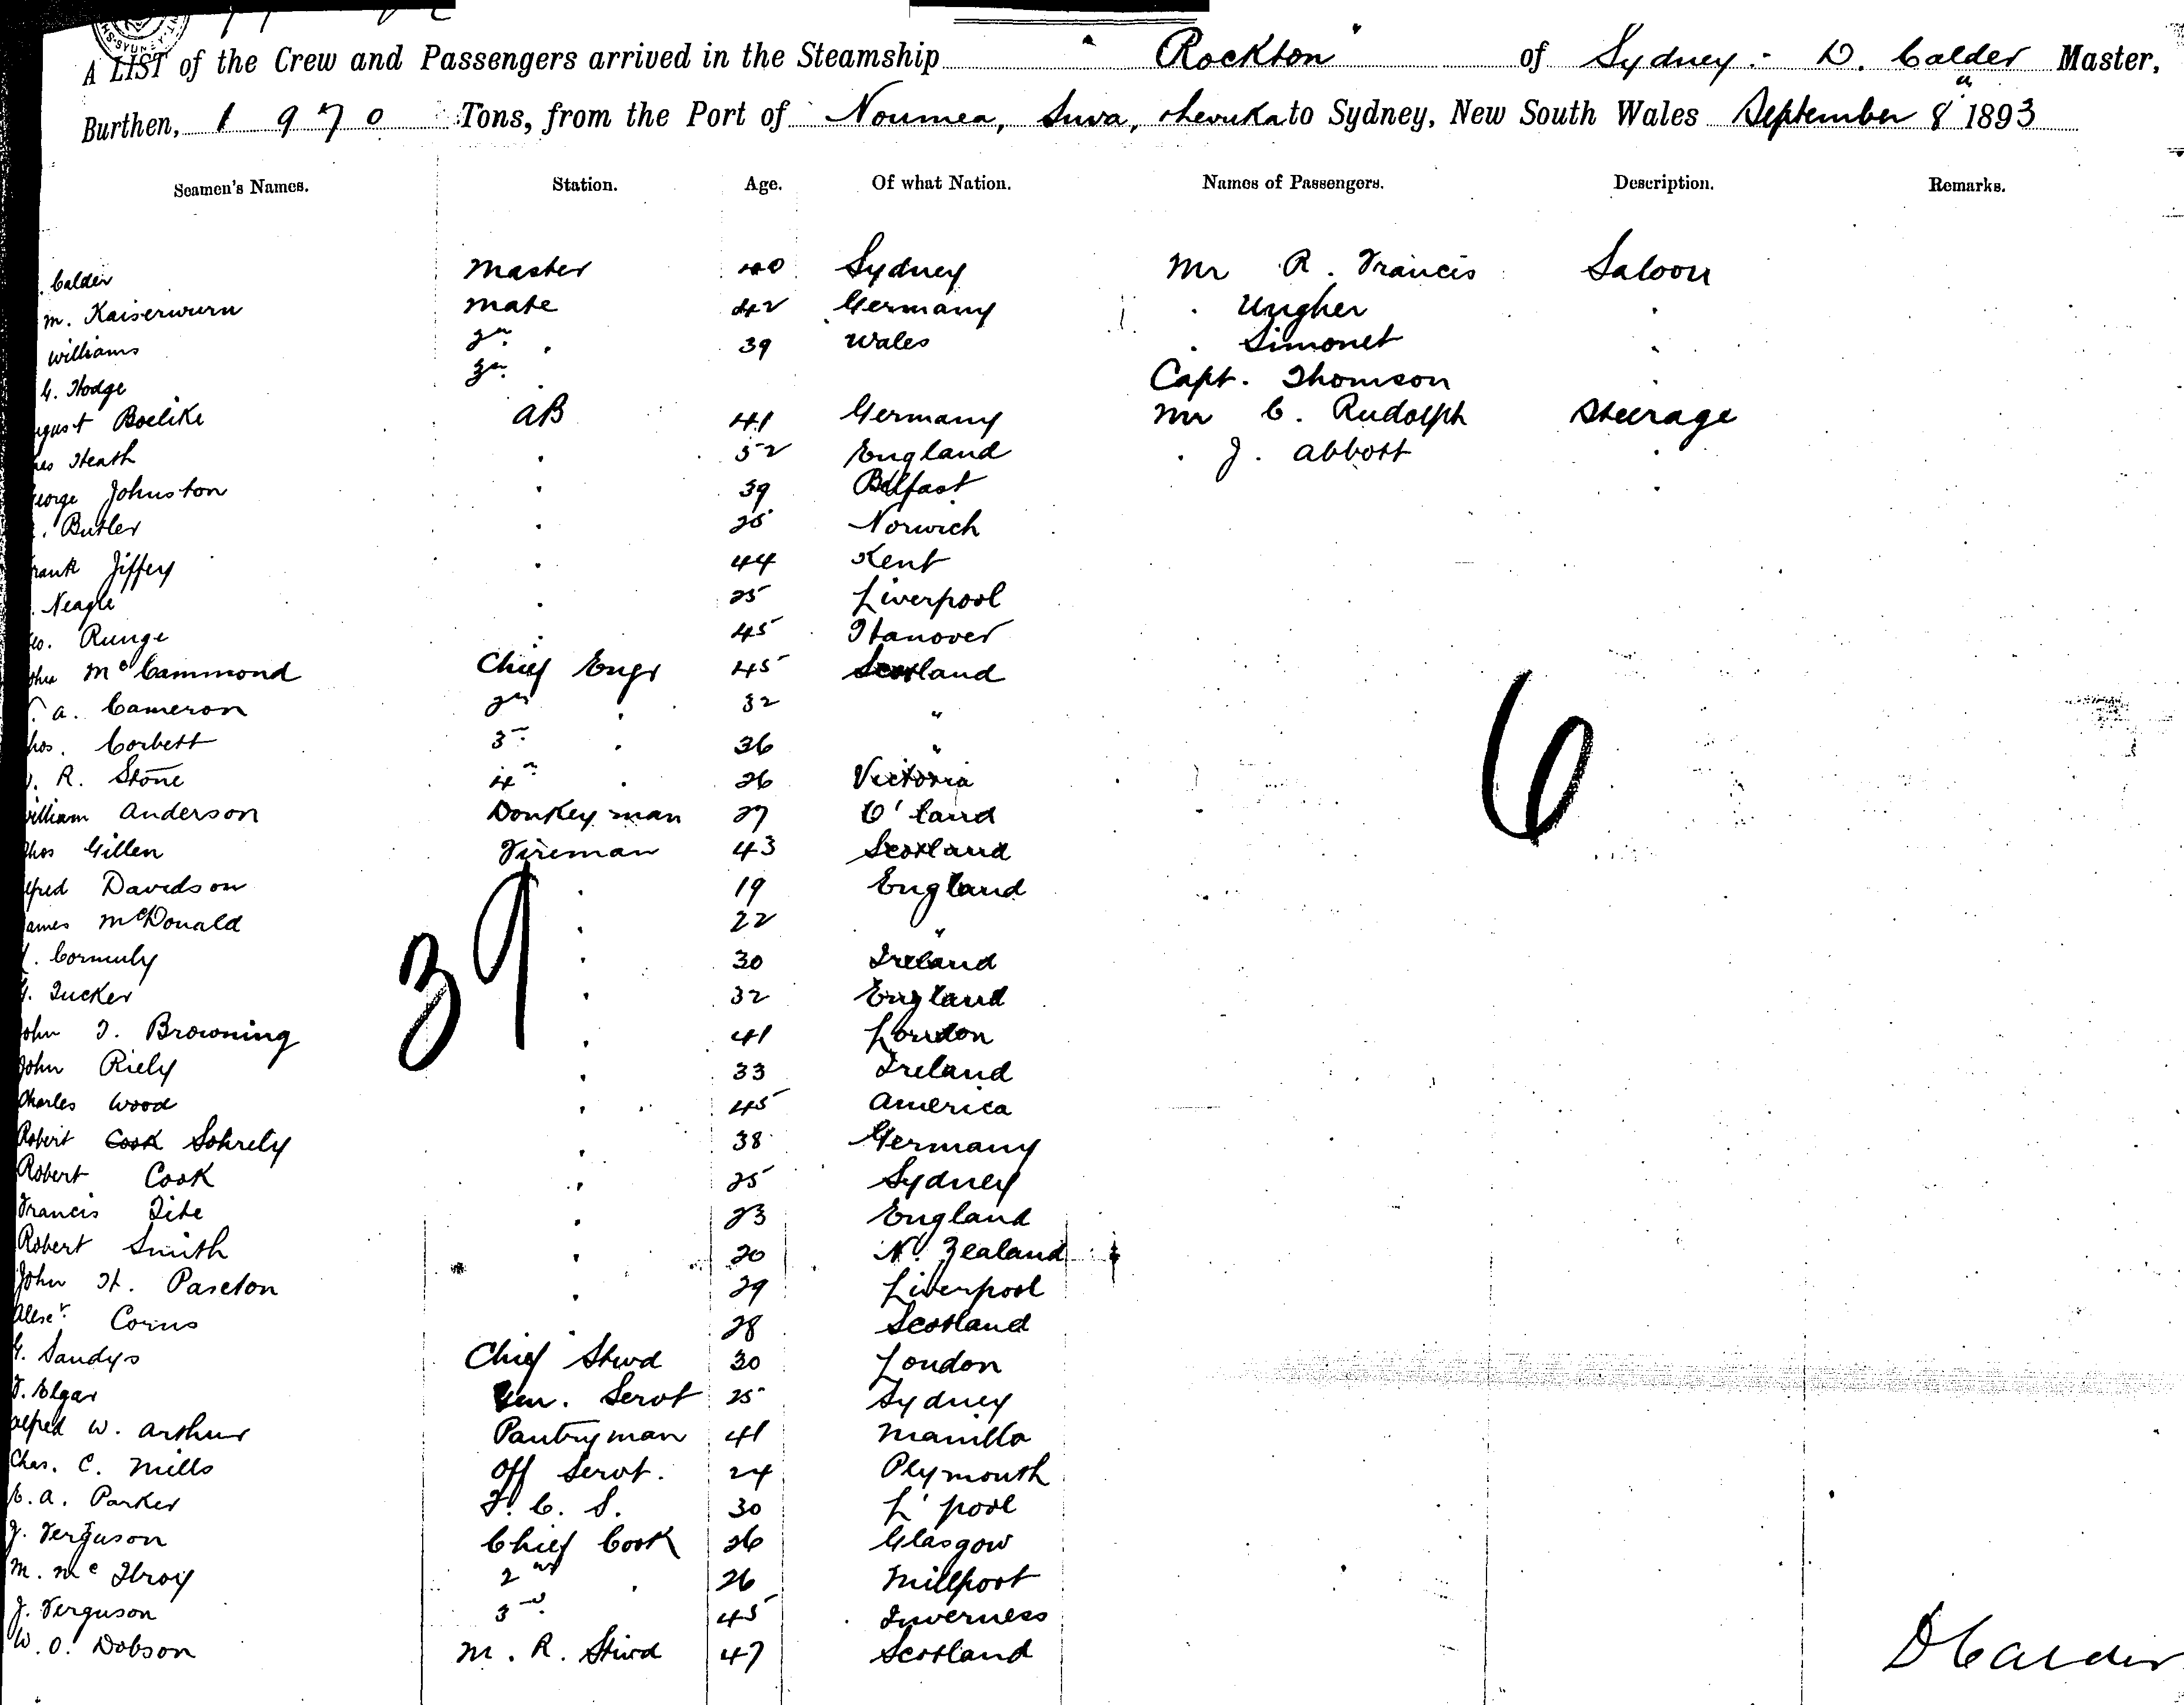 A LIST of the Crew and Passengers arrived in the Steamship "Rockton" of Sydney :- D. Calder Master,
Burthen, 1970 Tons, from the Port of Noumea, Suva, Levuka to Sydney, New South Wales September 8th 1893
Seamen's Names. Station. Age. Of what Nation. Names of Passengers. Description. Remarks.
. Calder Master 40 Sydney Mr R. Francis Saloon
m. Kaiserwurn Mate 42 Germany . Ungher .
Williams 2nd . 39 Wales . Simonet .
G. Hodge 3rd . Capt. Thomson .
gust Boelike AB 41 Germany Mr C. Rudolph Steerage
mes Heath . 52 England . J. Abbott .
eorge Johnston . 39 Belfast .
. Butler . 25 Norwich
rank Jiffery . 44 Kent
. Neagle . 25 Liverpool
eo. Runge . 45 Hanover
ohn McCammond Chief Engr 45 Scotland
. A. Cameron 2nd . 32 "
hos. Corbett 3rd . 36 "
. R. Stone 4th . 26 Victoria
illiam Anderson Donkeyman 27 Q'land
hos Gillen Fireman 43 Scotland
lfred Davidson . 19 England
ames McDonald . 22 "
. Cormuly . 30 Ireland
. Tucker . 32 England
John T. Browning . 41 London
John Riely . 33 Ireland
Charles Wood . 45 America
Robert Cook Sohrely . 38 Germany
Robert Cook . 25 Sydney
Francis Tite . 23 England
Robert Smith . 20 N. Zealand
John H. Paseton . 29 Liverpool
Alexr. Corns . 28 Scotland
G. Sandys Chief Stwd 30 London
F. Elgar Gen. Servt 25 Sydney
Alfred W. Arthur Pantryman 41 Manilla
Chas. C. Mills Off Servt. 24 Plymouth
E. A. Parker F. C. S. 30 L'pool
J. Ferguson Chief Cook 26 Glasgow
M. McIlroy 2nd . 26 Millport
J. Ferguson 3rd. 45 Inverness
W. O. Dobson M. R. Stwd 47 Scotland
39
6
D Calder